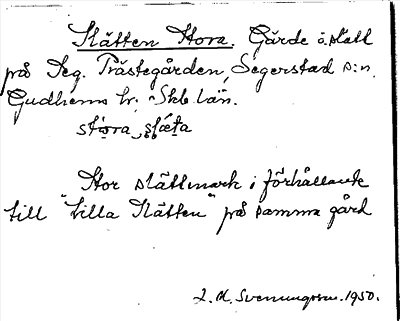 Slätten Stora. Gärde o. slätt
på Seg. Prästegården, Segerstad s:n
Gudhems hr. Skb. län.
stora slæta
Stor slättmark i förhållande
till "Lilla Slätten" på samma gård
Svenungsson. 1950.